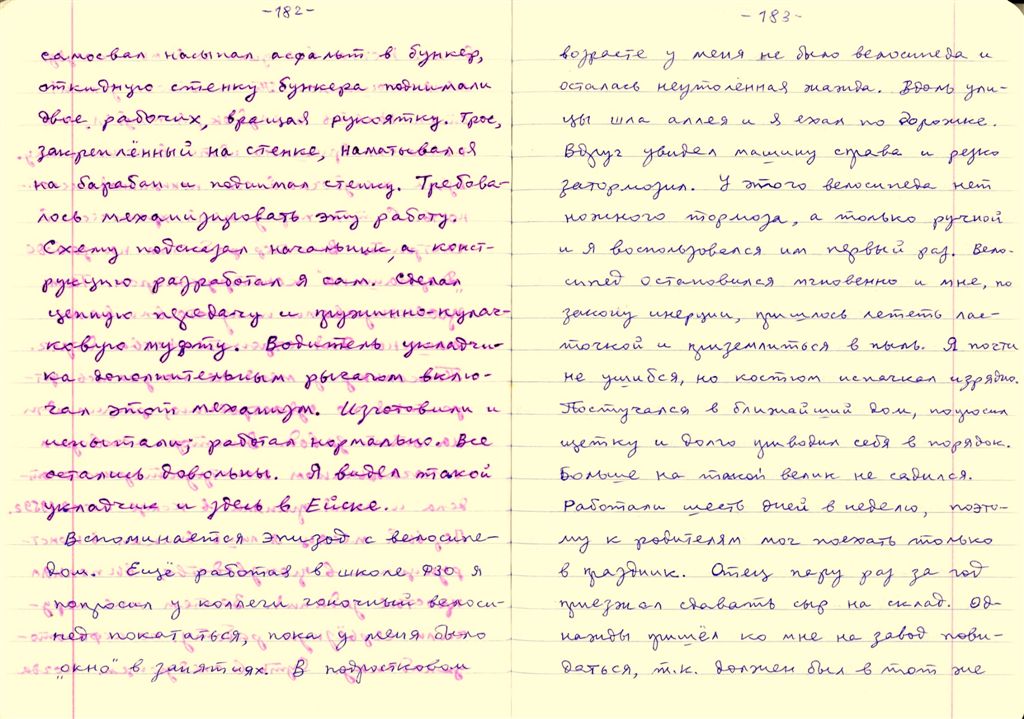 -182-
самосвал насыпал асфальт в бункер,
откидную стенку бункера поднимали
двое рабочих, вращая рукоятку. Трос,
закреплённый на стенке, наматывался
на барабан и поднимал стенку. Требова-
лось механизировать эту работу.
Схему подсказал начальник, а конст-
рукцию разработал я сам. Сделал
цепную передачу и пружинно-кулач-
ковую муфту. Водитель укладчи-
ка дополнительным рычагом вклю-
чал этот механизм. Изготовили и
испытали; работал нормально. Все
остались довольны. Я видел такой
укладчик и здесь в Ейске.
Вспоминается эпизод с велосипе-
дом. Ещё работая в школе ФЗО я
попросил у коллеги гоночный велоси-
пед покататься, пока у меня было
„окно" в занятиях. В подростковом
-183-
возрасте у меня не было велосипеда и
осталась неутолённая жажда. Вдоль ули-
цы шла аллея и я ехал по дорожке.
Вдруг увидел машину справа и резко
затормозил. У этого велосипеда нет
ножного тормоза, а только ручной
и я воспользовался им первый раз. Вело-
сипед остановился мгновенно и мне, по
закону инерции, пришлось лететь лас-
точкой и приземлиться в пыль. Я почти
не ушибся, но костюм испачкал изрядно.
Постучался в ближайший дом, попросил
щетку и долго приводил себя в порядок.
Больше на такой велик не садился.
Работали шесть дней в неделю, поэто-
му к родителям мог поехать только
в праздник. Отец пару раз за год
приезжал сдавать сыр на склад. Од-
нажды пришёл ко мне на завод пови-
даться, т.к. должен был в тот же